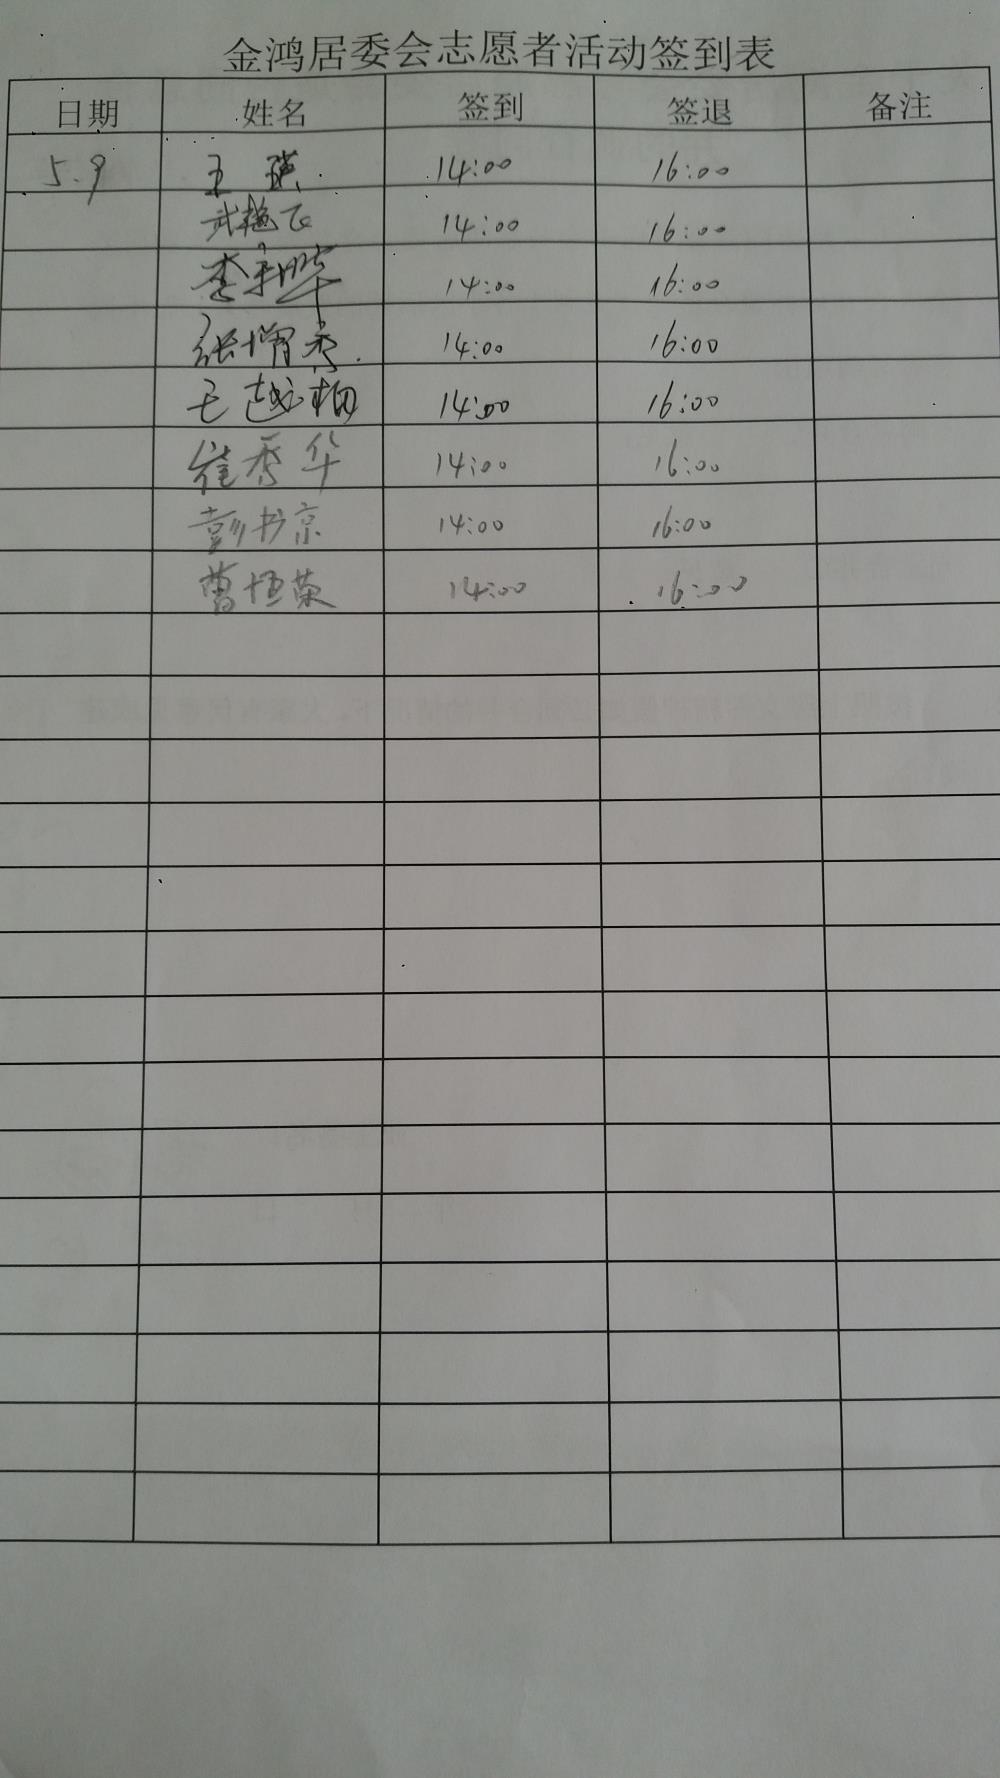 金鸿居委会志愿者活动签到表
日期 姓名 签到 签退 备注
5.9 王瑛 14:00 16:00
武艳飞 14:00 16:00
李晔 14:00 16:00
张增秀 14:00 16:00
王越相 14:00 16:00
崔秀华 14:00 16:00
彭书京 14:00 16:00
曹恒荣 14:00 16:00